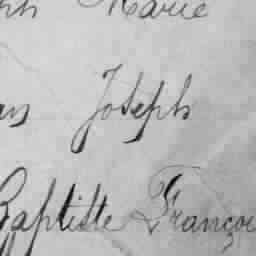 ph Marie
Joseph
Baptiste Françoi